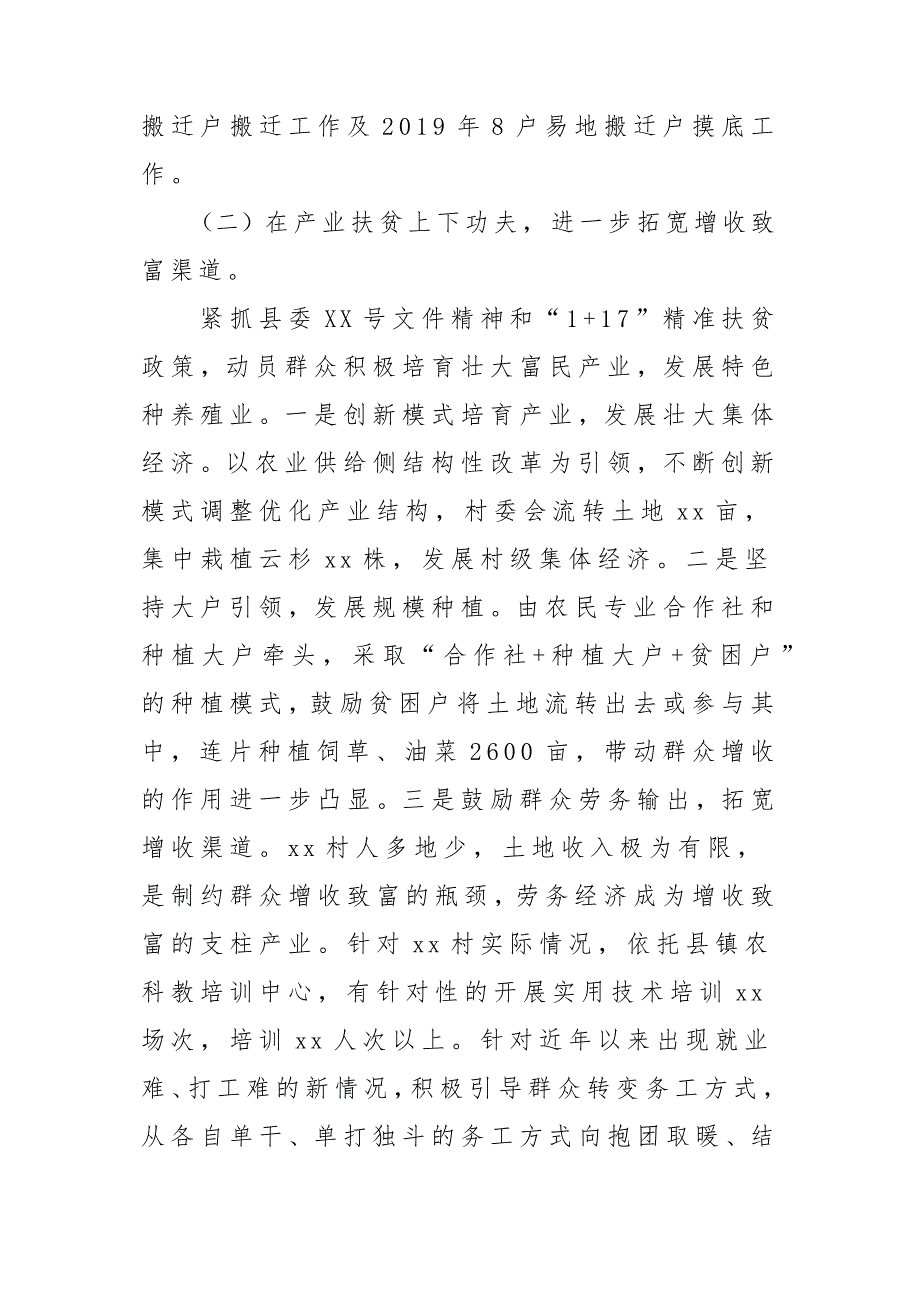 搬迁户搬迁工作及2019年8户易地搬迁户摸底工
作。
（二）在产业扶贫上下功夫，进一步拓宽增收致
富渠道。
紧抓县委XX号文件精神和“1+17”精准扶贫
政策，动员群众积极培育壮大富民产业，发展特色
种养殖业。一是创新模式培育产业，发展壮大集体
经济。以农业供给侧结构性改革为引领，不断创新
模式调整优化产业结构，村委会流转土地xx亩，
集中栽植云杉xx株，发展村级集体经济。二是坚
持大户引领，发展规模种植。由农民专业合作社和
种植大户牵头，采取“合作社+种植大户+贫困户”
的种植模式，鼓励贫困户将土地流转出去或参与其
中，连片种植饲草、油菜2600亩，带动群众增收
的作用进一步凸显。三是鼓励群众劳务输出，拓宽
增收渠道。xx村人多地少，土地收入极为有限，
是制约群众增收致富的瓶颈，劳务经济成为增收致
富的支柱产业。针对xx村实际情况，依托县镇农
科教培训中心，有针对性的开展实用技术培训xx
场次，培训xx人次以上。针对近年以来出现就业
难、打工难的新情况，积极引导群众转变务工方式，
从各自单干、单打独斗的务工方式向抱团取暖、结